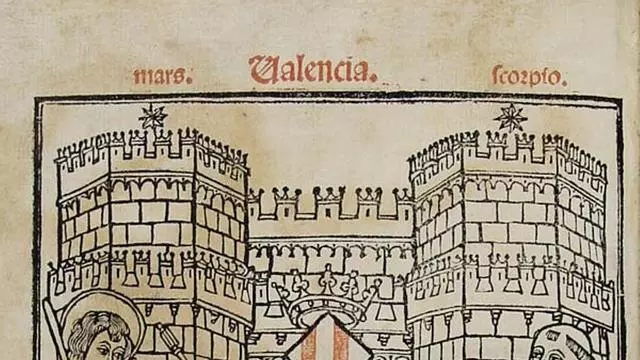 mars. Ualencia. scorpio.